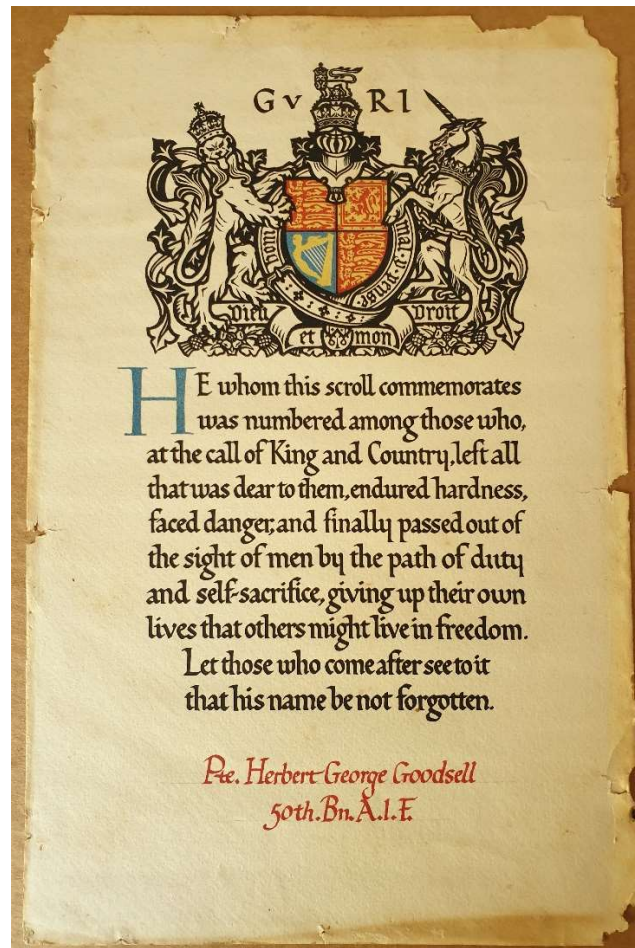 G v R I
mal y pense
Dieu et mon Droit
HE whom this scroll commemorates
was numbered among those who,
at the call of King and Country, left all
that was dear to them, endured hardness,
faced danger, and finally passed out of
the sight of men by the path of duty
and self-sacrifice, giving up their own
lives that others might live in freedom.
Let those who come after see to it
that his name be not forgotten.
Pte. Herbert George Goodsell
50th. Bn. A.I.F.